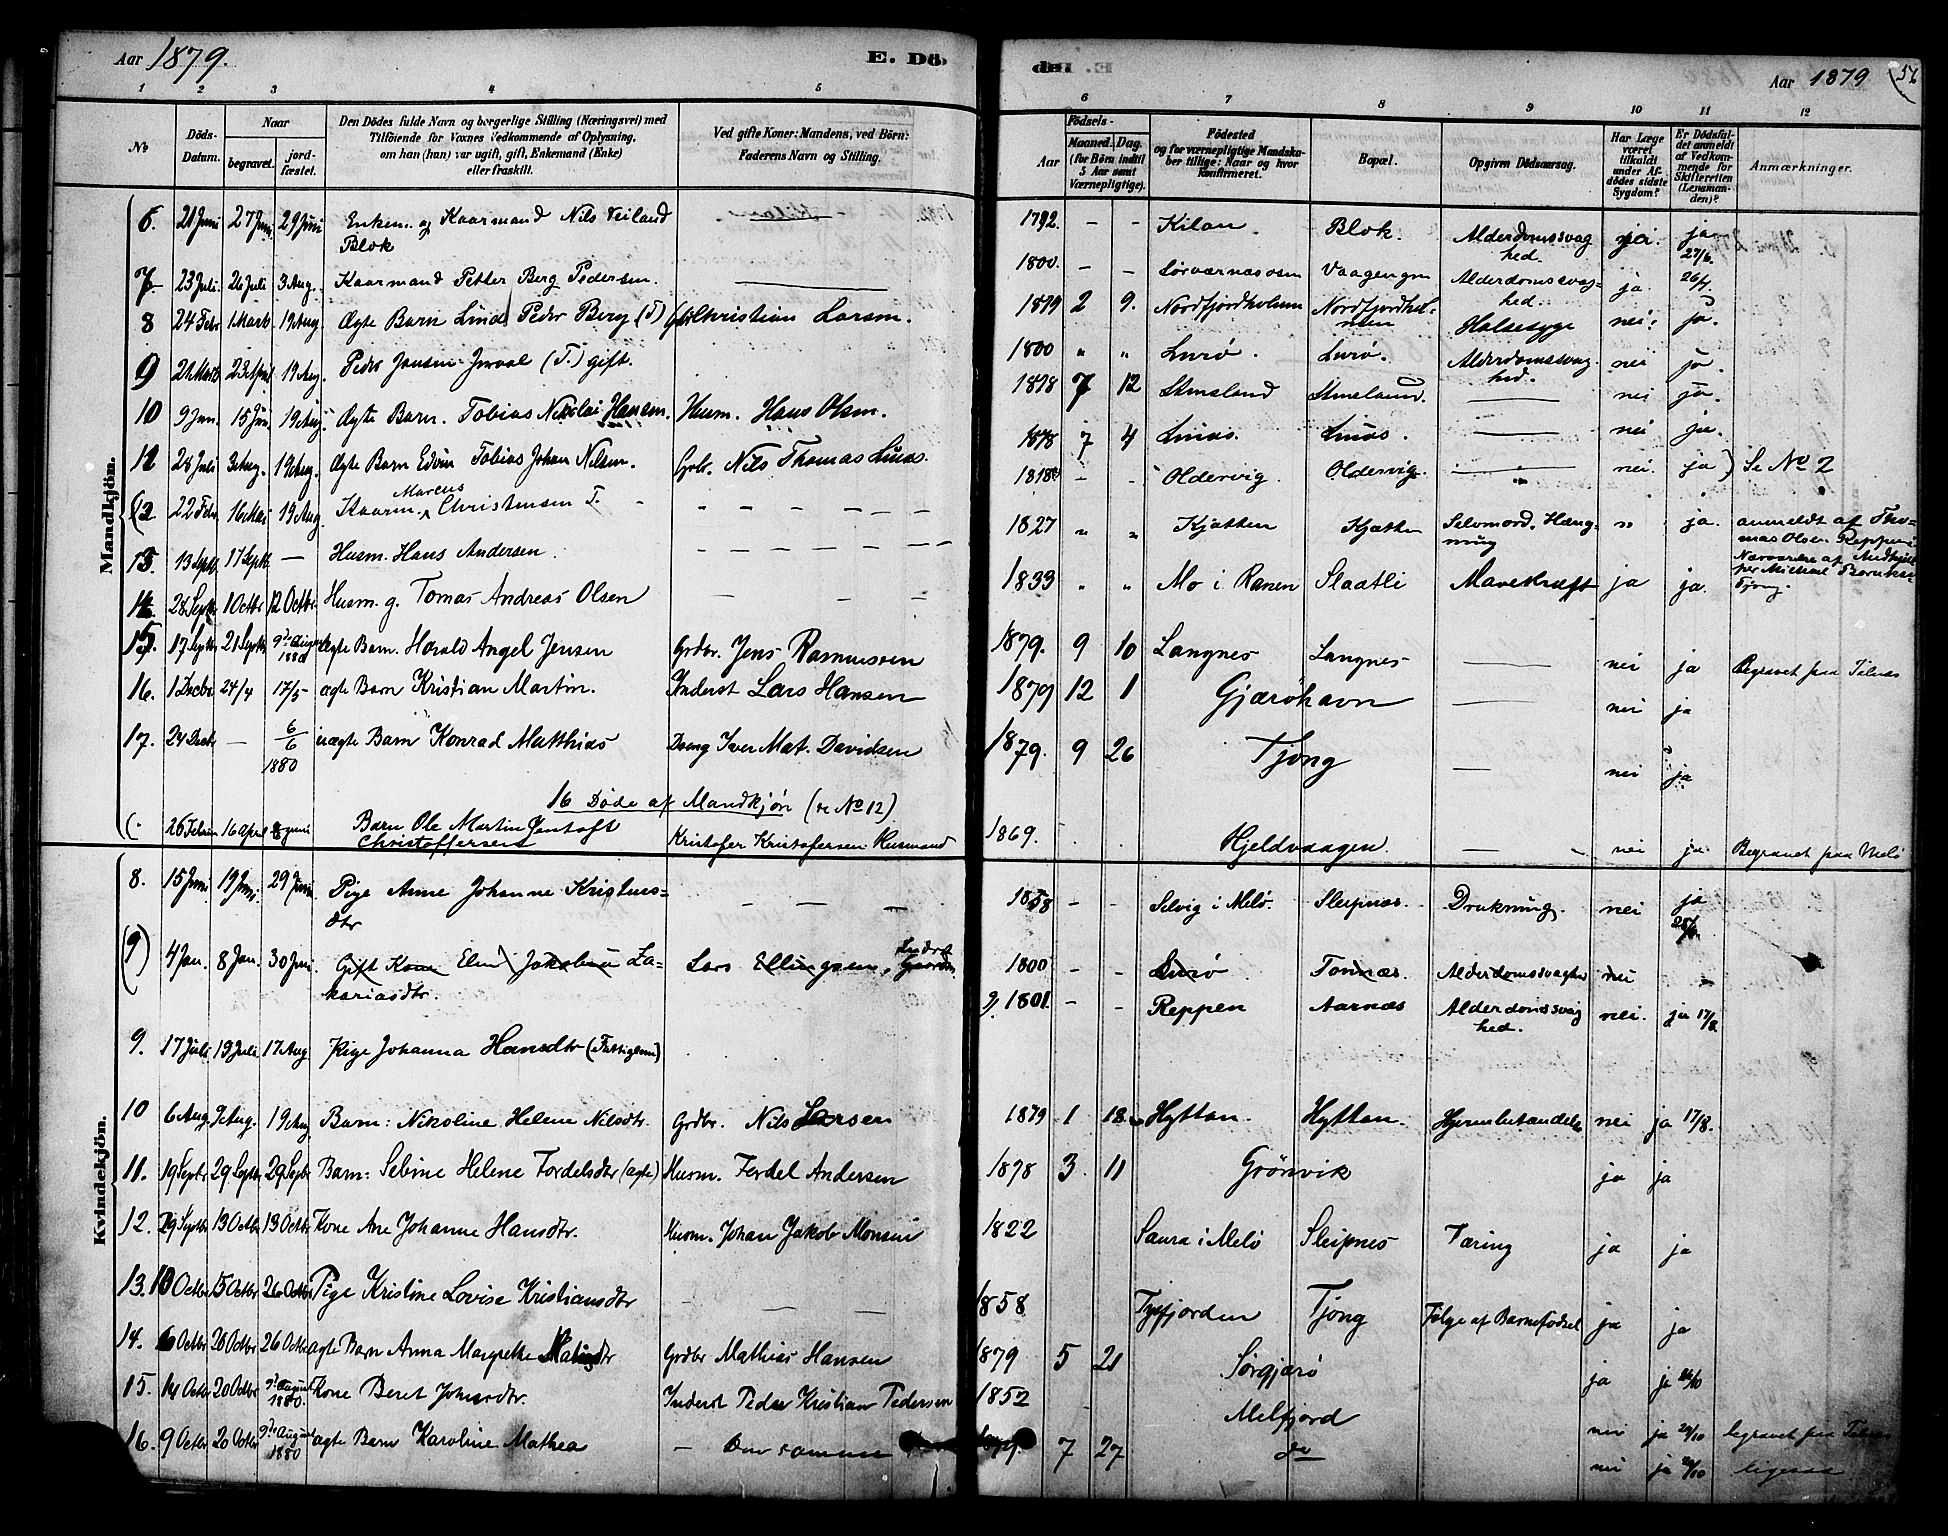 Aar 1879. E. Dö-
den Aar 1879 56
1 2 3 4 5 6 7 8 9 10 11 12
No
Döds-Datum.
Naar
begravet.
jord-fæstet.
Den Dödes fulde Navn og borgerlige Stilling (Næringsvei) med
Tilföiende for Voxnes Vedkommende af Oplysning,
om han (hun) var ugift, gift, Enkemand (Enke)
eller fraskilt.
Ved gifte Koner: Mandens, ved Börn:
Faderens Navn og Stilling.
Födsels-
Aar
Maaned. Dag.
(for Börn indtil
5 Aar samt
Værnepligtige).
Födested
og for værnepligtige Mandska-
ber tillige: Naar og hvor
Konfirmeret.
Bopæl.
Opgiven Dödsaarsag.
Har Læge
været
tilkaldt
under Af-
dödes sidste
Sygdom?
Er Dödsfal-
det anmeldt
af Vedkom-
mende for
Skifteretten
(Lensman-
den)?
Anmærkninger.
Mandkjön.
6. 21 Juni 27 Juni 29 Juni Enkem. og Kaarmand Nils Veiland Blok 1792. - - Kilan. Blok. Alderdomssvaghed. nei. ja 27/6.
7 23 Juli 26 Juli 3 Aug. Kaarmand Petter Berg Pedersen. 1800. - - Sörværnæsosen Vaagengen Alderdomssvaghed. ja 26/7.
8 24 Febr 1 Marts 19 Aug. Ægte Barn Peder Berg (T) Christian Larsen. 1879 2 9. Nordfjordholmen Nordfjordholmen Halsesyge nei. ja.
9 21 Marts 23 April 19 Aug. Peder Jansen (T.) gift. 1800 " " Lurö. Lurö. Alderdomssvaghed. nei ja.
10 9 Jan. 15 Juni 19 Aug. Ægte Barn. Tobias Nikolai Hansen. Husm. Hans Olsen. 1878 7 12 Stensland Stensland. nei ja.
11 28 Juli 3 Aug. 19 Aug. Ægte Barn Edvin Tobias Johan Nilsen. Grbr. Nils Thomas Lunas. 1878 7 4 Lunas. Lunas. nei ja.
(12 22 Febr 16 Mai 19 Aug. Kaarm. Marcus Christensen T. 1818 - - Oldervig. Oldervig. nei. ja ) Se No 2
13. 13 Septb. 17 Septb. — Husm. Hans Andersen. 1827 " " Kjatten Kjatten Selvmord. Hængning " ja. anmeldt af Thomas Olsen Reppen
14 28 Septbr 1 Octbr 12 Octbr. Husm. g. Tomas Andreas Olsen 1833 " " Mo i Ranen Slaatli Mavekræft ja ja. Tjong.
15. 17 Septbr 21 Septbr 9de August 1880 ægte Barn. Harald Angel Jensen Grdbr. Jens Rasmussen 1879. 9 10 Langnes Langnes nei ja Begravet paa Telnes
16. 1 Decbr 24/4 17/5- ægte Barn Kristian Martin. Inderst Lars Hansen 1879 12 1 Gjæröhavn nei ja
17. 24 Decbr — 6/6 1880 uægte Barn Konrad Matthias Dreng Iver Mat. Davidsen 1879. 9 26 Tjong nei ja
16 Döde af Mandkjön (se No 12)
(. 26 Februar 16 April 8 Juni Barn Ole Martin Jentoft Christoffersen Kristofer Kristofersen Husmand 1869. Hjeldvaagen. nei ja Begravet paa Melö
Kvindekjön.
8. 15 Juni 19 Juni 29 Juni Pige Anne Johanne Kristensdtr 1858 - - Selvig i Melö. Sleipnæs. Drukning. nei ja
(9) 4 Jan. 8 Jan. 30 Juni. Gift Kone Elen Jakobine Zakariasdtr. Lars Ellingsen, Inderst 1800 - - Lurö Tonnæs. Alderdomssvaghed nei -
9. 17 Juli 19 Juli 17 Aug Pige Johanna Hansdtr (Fattiglem) 1801. - - Reppen Aarnæs Alderdomssvaghed. nei. ja 17/8.
10 6 Aug. 9 Aug. 19 Aug Barn: Nikoline Helene Nilsdtr. Grdbr. Nils Larsen 1879 1 18. Hyttan. Hyttan. Hjernebetændelse nei ja 17/8.
11. 19 Septbr 29 Septbr 29 Septbr Barn: Sebine Helene Fordelsdtr (ægte) Husm. Fordel Andersen 1878 3 11 Grönvik ja ja
12. 29 Septbr 13 Octbr 13 Octbr Kone Ane Johanne Hansdtr. Husm. Johan Jakob Monsen 1822 Saura i Melö Sleipnes Tæring ja ja
13. 10 Octbr 15 Octbr 26 Octbr Pige Kristine Lovise Kristiansdtr 1858 Tysfjorden Tjong Fölge af Barnefödsel ja ja
14. 6 Octbr 20 Octbr 26 Octbr ægte Barn Anna Margrethe Matisdtr Grdbr Mathias Hansen 1879 5 21 Sörgjærö ja ja
15. 14 Octbr 20 Octbr 9de August 1880. Kone Beret Johnsdtr. Inderst Peder Kristian Pedersen 1852 Melfjord nei ja 20/10 begravet paa Telnes
16. 9 Octbr 20 Octbr 9de August 1880 ægte Barn Karoline Mathea — Den samme 1879. 7 27 do nei ja 20/10 ligesaa